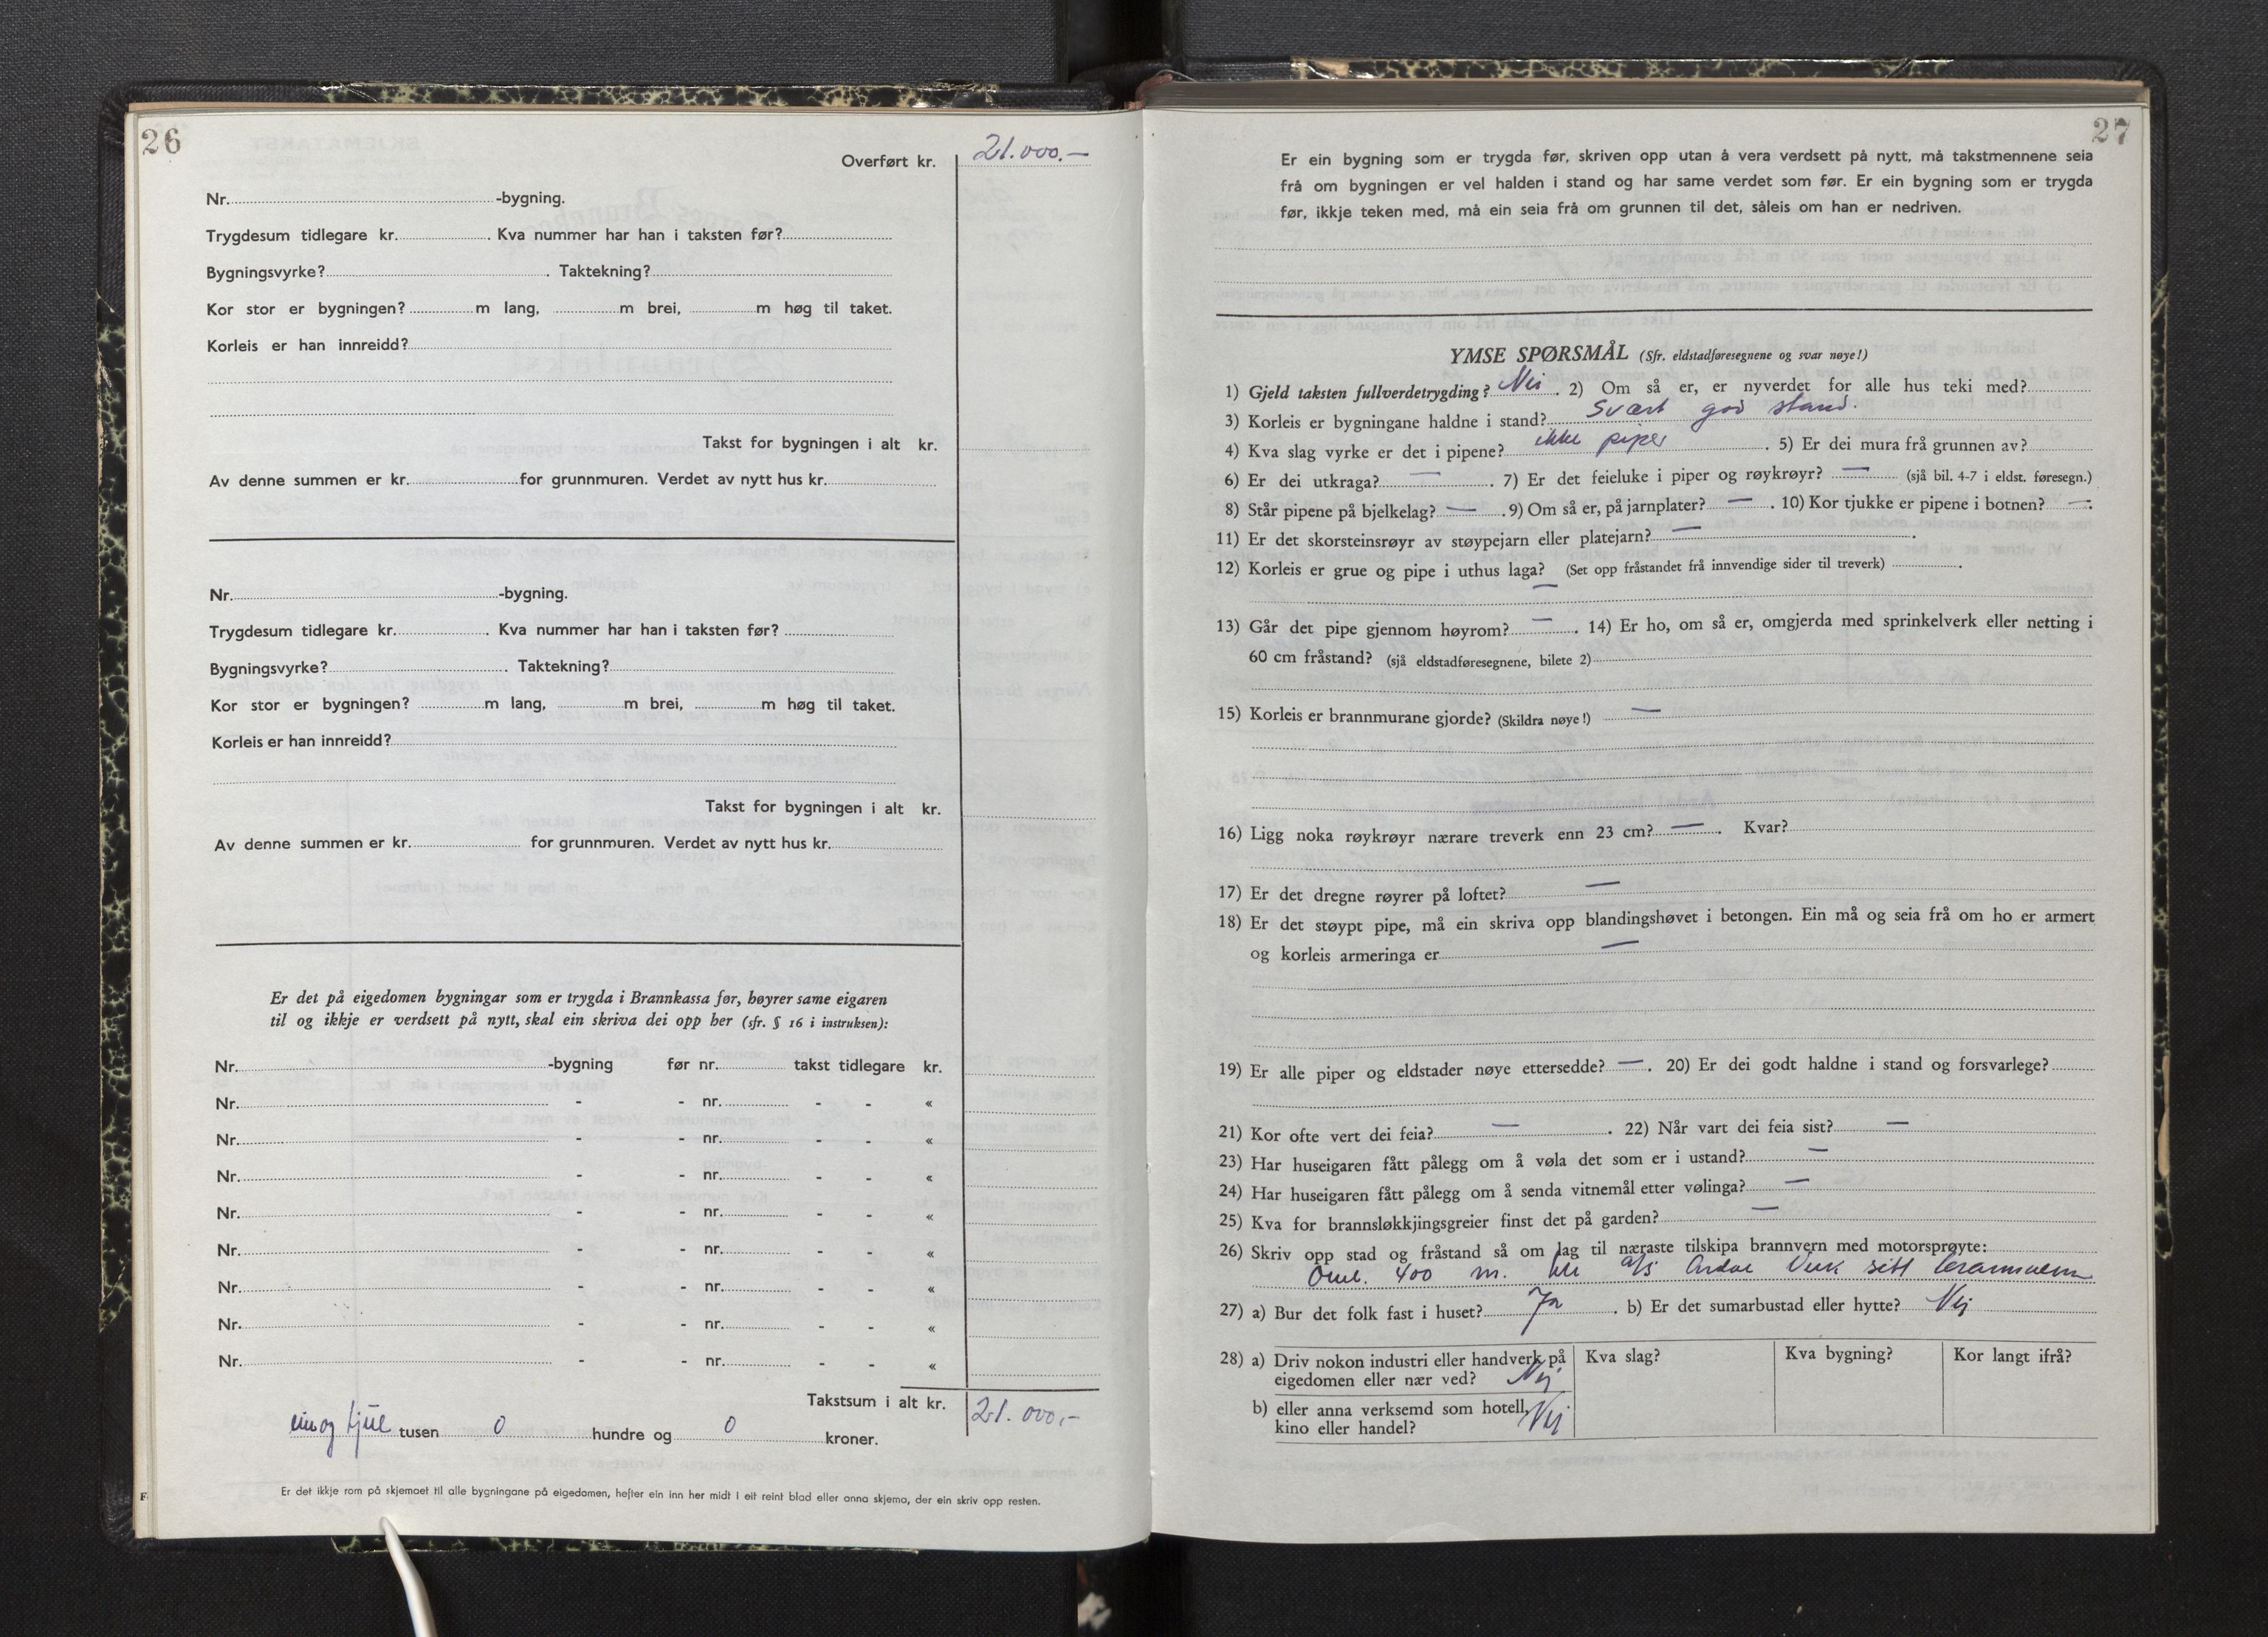 26
Overført kr. 21.000.—
Nr. -bygning.
Trygdesum tidlegare kr. . Kva nummer har han i taksten før?
Bygningsvyrke? . Taktekning?
Kor stor er bygningen? m lang, m brei, m høg til taket.
Korleis er han innreidd?
Takst for bygningen i alt kr.
Av denne summen er kr. for grunnmuren. Verdet av nytt hus kr.
Nr. -bygning.
Trygdesum tidlegare kr. . Kva nummer har han i taksten før?
Bygningsvyrke? . Taktekning?
Kor stor er bygningen? m lang, m brei, m høg til taket.
Korleis er han innreidd?
Takst for bygningen i alt kr.
Av denne summen er kr. for grunnmuren. Verdet av nytt hus kr.
Er det på eigedomen bygningar som er trygda i Brannkassa før, høyrer same eigaren
til og ikkje er verdsett på nytt, skal ein skriva dei opp her (sfr. § 16 i instruksen):
Nr. -bygning før nr. takst tidlegare kr.
Nr. - - nr. - - «
Nr. - - nr. - - «
Nr. - - nr. - - «
Nr. - - nr. - - «
Nr. - - nr. - - «
Nr. - - nr. - - «
Nr. - - nr. - - «
Nr. - - nr. - - «
Takstsum i alt kr. 21.000,-
ein og tjue tusen 0 hundre og 0 kroner.
Er det ikkje rom på skjemaet til alle bygningane på eigedomen, hefter ein inn her midt i eit reint blad eller anna skjema, der ein skriv opp resten.
27
Er ein bygning som er trygda før, skriven opp utan å vera verdsett på nytt, må takstmennene seia
frå om bygningen er vel halden i stand og har same verdet som før. Er ein bygning som er trygda
før, ikkje teken med, må ein seia frå om grunnen til det, såleis om han er nedriven.
YMSE SPØRSMÅL (Sfr. eldstadføresegnene og svar nøye!)
1) Gjeld taksten fullverdetrygding? Nei . 2) Om så er, er nyverdet for alle hus teki med?
3) Korleis er bygningane haldne i stand? Svært god stand.
4) Kva slag vyrke er det i pipene? ikke piper . 5) Er dei mura frå grunnen av?
6) Er dei utkraga? — . 7) Er det feieluke i piper og røykrøyr? — (sjå bil. 4-7 i eldst. føresegn.)
8) Står pipene på bjelkelag? — . 9) Om så er, på jarnplater? — . 10) Kor tjukke er pipene i botnen? — .
11) Er det skorsteinsrøyr av støypejarn eller platejarn? — .
12) Korleis er grue og pipe i uthus laga? (Set opp fråstandet frå innvendige sider til treverk) .
—
13) Går det pipe gjennom høyrom? — . 14) Er ho, om så er, omgjerda med sprinkelverk eller netting i
60 cm fråstand? (sjå eldstadføresegnene, bilete 2)
15) Korleis er brannmurane gjorde? (Skildra nøye!) —
16) Ligg noka røykrøyr nærare treverk enn 23 cm? — . Kvar?
17) Er det dregne røyrer på loftet? —
18) Er det støypt pipe, må ein skriva opp blandingshøvet i betongen. Ein må og seia frå om ho er armert
og korleis armeringa er —
19) Er alle piper og eldstader nøye ettersedde? — . 20) Er dei godt haldne i stand og forsvarlege?
21) Kor ofte vert dei feia? — . 22) Når vart dei feia sist? —
23) Har huseigaren fått pålegg om å vøla det som er i ustand? —
24) Har huseigaren fått pålegg om å senda vitnemål etter vølinga? —
25) Kva for brannsløkkjingsgreier finst det på garden? —
26) Skriv opp stad og fråstand så om lag til næraste tilskipa brannvern med motorsprøyte:
Oml. 400 m. til a/s Årdal Verk sitt brannvern
27) a) Bur det folk fast i huset? Ja . b) Er det sumarbustad eller hytte? Nei
28) a) Driv nokon industri eller handverk på
eigedomen eller nær ved? Nei
Kva slag? Kva bygning? Kor langt ifrå?
b) eller anna verksemd som hotell,
kino eller handel? Nei